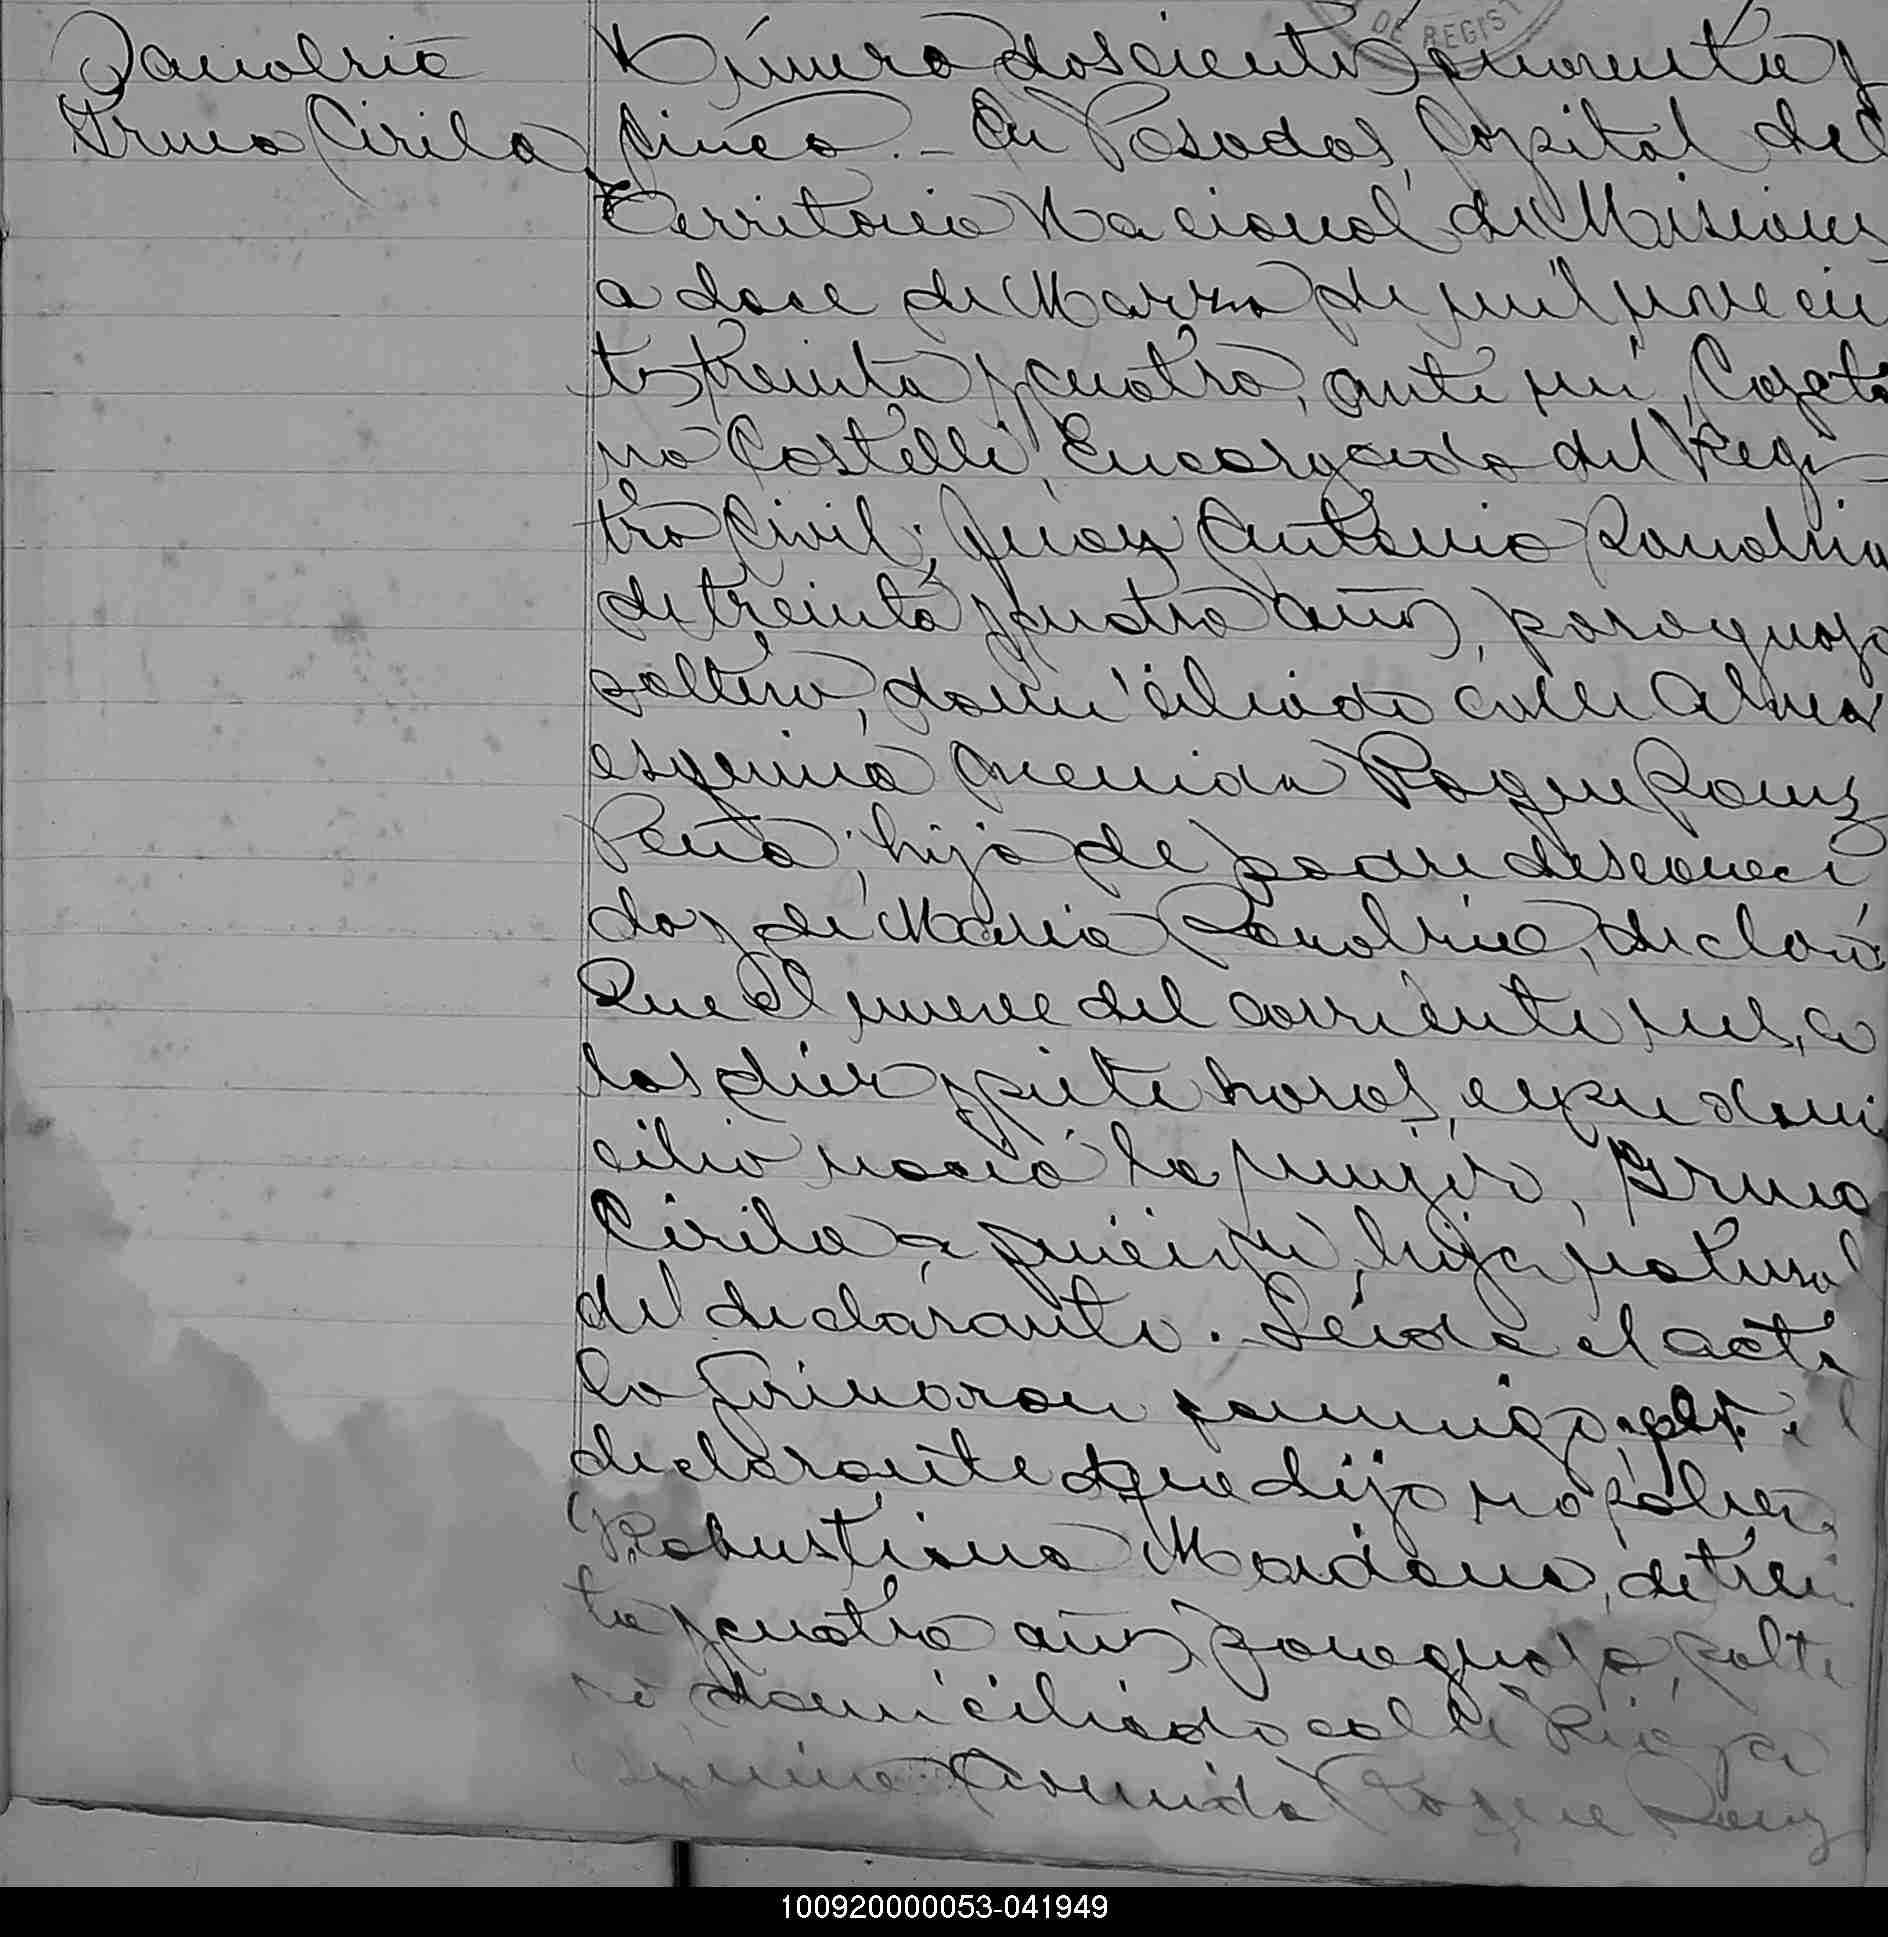 Sanabria
Irma Cirila
DE REGIST
Número doscientos cuarenta y
cinco.- En Posadas, Capital del
Territorio Nacional de Misiones
a doce de Marzo de mil novecien
tos treinta y cuatro, ante mi, Cayeta
no Castelli, Encargado del Regis-
tro Civil; Juan Antonio Sanabria
de treinta y cuatro años, paraguayo
soltero, domiciliado calle
esquina Avenida Roque Saenz
Peña; hijo de padre desconoci
do y de Maria Sanabria, declaró
Que el nueve del corriente mes, a
las diez y siete horas, en su domi
cilio nació la mujer, Irma
Cirila a quien vi, hija natural
del declarante. Leida el acta
la firmaron conmigo, por el
declarante que dijo no saber,
Robustiano Maidana, de trein
ta y cuatro años, paraguayo, solte
ro domiciliado calle Rioja
esquina Avenida Roque Saenz
100920000053-041949